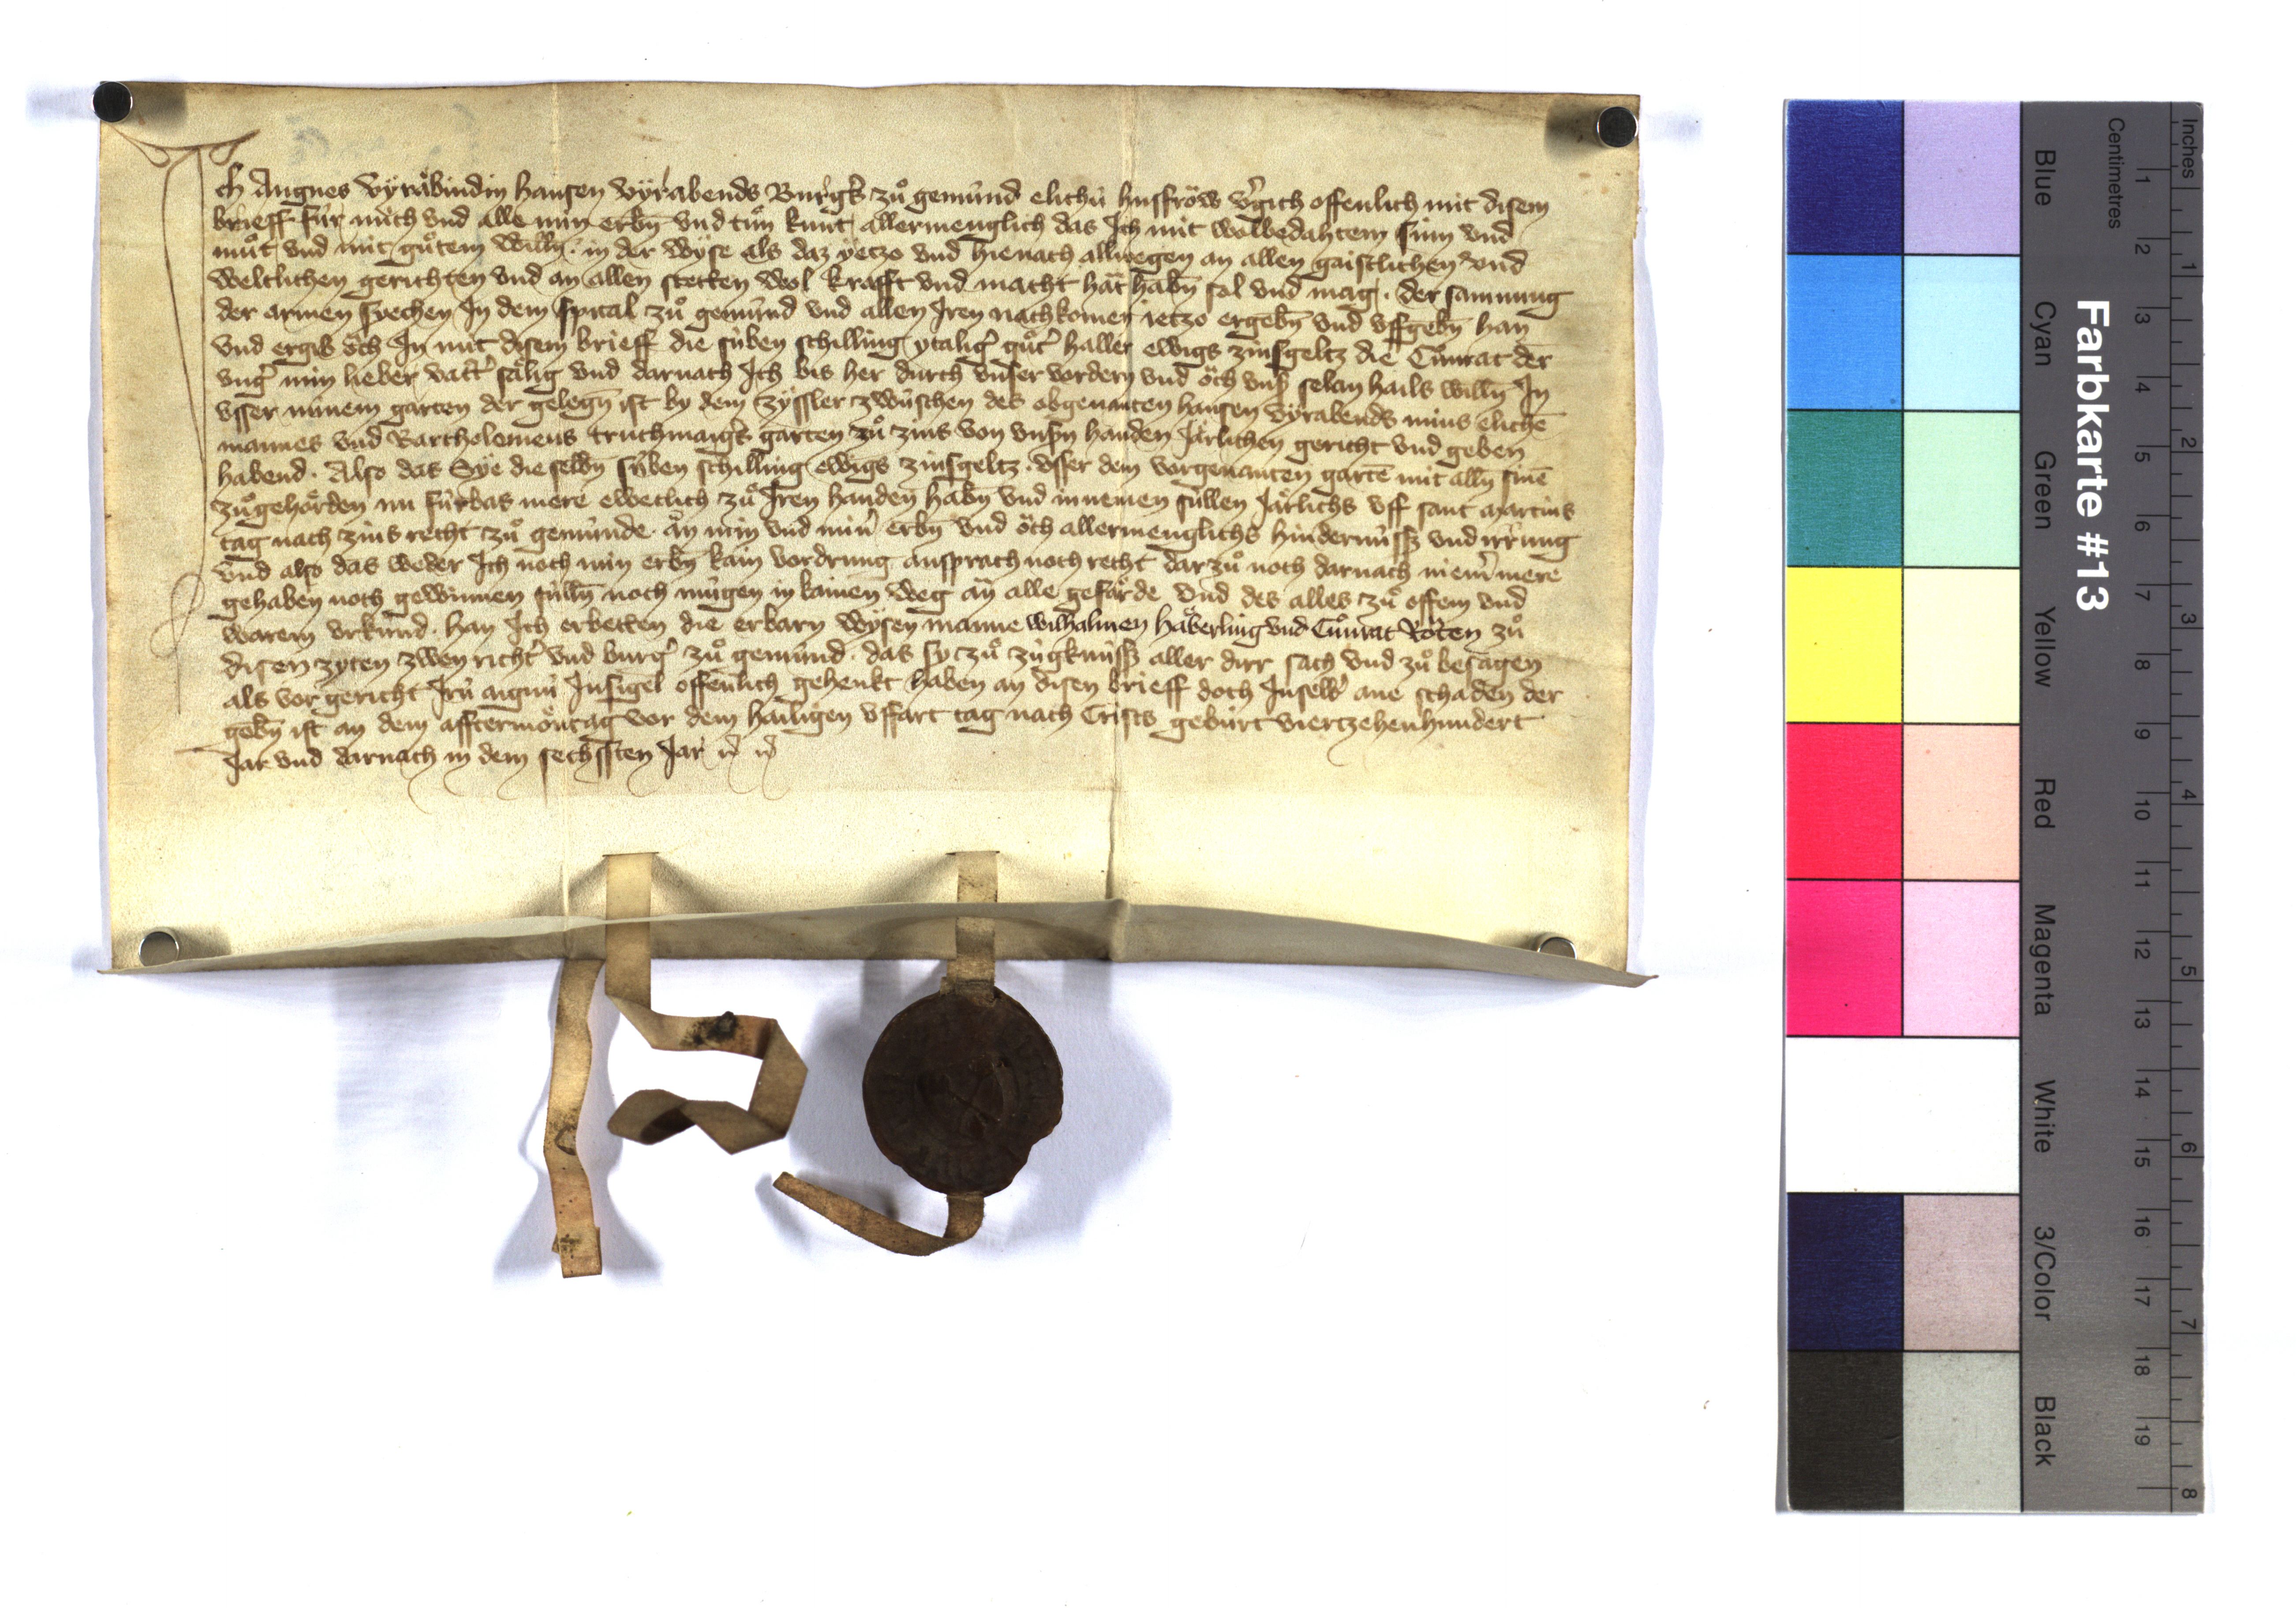 Ich Angnes Vÿraͤbindin hansen vÿrabends Burgs̄ zuͦ gemuͤnd elichuͤ husfroͤw v̄gich offenlich mit disem
brieff fuͤr mich vnd alle min erbn̄ vnd tuͦn kunt allermenglich das Ich mit wolbedahtem sinn vnd
muͦt vnd mit guͦtem willn̄ in der wÿse als daz yetzo vnd hienach allwegen an allen gaistlichen vnd
weltlichen gerichten vnd an allen stetten wol krafft vnd macht haͤt habn̄ sol vnd mag . der samnung
der armen siechen In dem spital zuͦ gemuͤnd vnd allen Iren nachkomen ietzo ergebn̄ vnd vffgebn̄ han
vnd ergib oͤch In mit disem brieff die siben schilling ytaliḡ guͦt̄ haller ewigs zinsgeltz die Cuͦnrat der
vnḡ min lieber vatt̄ saͤlig vnd darnach Ich bis her durch vnser vordern vnd oͤch vns̄ selan hails willn̄ In
vsser minem garten der gelegn̄ ist by dem zÿssler zwuͤschen des obgenanten hansen vÿrabends mins elichē
mannes vnd Bartholemeus truchmaigs̄ garten zuͦ zins von vnsn̄ handen Jaͤrlichen gericht vnd geben
habend . Also das Sÿe die selbn̄ siben schilling ewigs zinsgeltz . vsser dem vorgenanten gartē mit alln̄ sinē
zuͦgehoͤrden nu fuͤrbas mere eweclich zuͦ Iren handen habn̄ vnd innemen suͤllen Jaͤrlichs vff sant martins
tag nach zins recht zuͦ gemuͤnde . aͮn min vnd min̄ erbn̄ vnd oͤch allermenglichs hindernuͤss vnd irrung
vnd also das weder Ich noch min erbn̄ kain vordrung ansprach noch recht dar zuͦ noch darnach niem̄ mere
gehaben noch gewinnen suͤlln̄ noch muͤgen in kainen weg aͮn alle gefaͤrde vnd des alles zuͦ offem vnd
warem vrkuͤnd . han Ich erbetten die erbarn wÿsen manne wilhalmen haͤberling vnd Cuͦnrat Roͮten zuͦ
disen zyten zwen richt̄ vnd burḡ zuͦ gemuͤnd . das sy zuͦ zuͤgknuͤss aller dirr sach vnd zuͦ besagen
als vor gericht Iruͤ aignuͤ Insigel offenlich gehenkt haben an disen brieff doch Inselb̄ ane schaden der
gebn̄ ist an dem afftermoͤntag vor dem hailigen vffart tag nach Crists geburt viertzehenhundert
Jar vnd darnach in dem sechssten Jar
Farbkarte #13
Blue Cyan Green Yellow Red Magenta White 3/Color Black
Centimetres 1 2 3 4 5 6 7 8 9 10 11 12 13 14 15 16 17 18 19
Inches 1 2 3 4 5 6 7 8